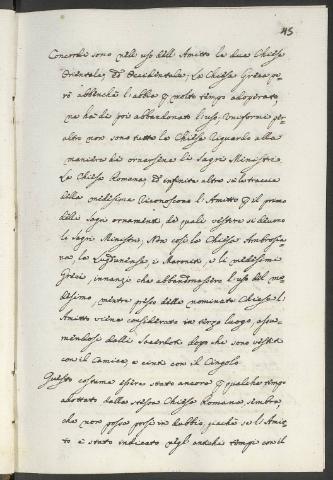 45
Concordi sono nell' uso dell' Amitto le due Chiese
Orientale, ed Occidentale; La Chiesa Greca pe-
rò abbenchè l'abbia p molto tempo adoperato,
ne ha di poi abbandonato l'uso. Uniformi pe-
altro non sono tutte le Chiese riguardo alla
maniera di ornarsene li Sagri Ministri.
La Chiesa Romana, ed infinite altre su la traccia
della medesima riconoscono l'Amitto p il primo
delli Sagri ornamenti de quali vestire si devono
li Sagri Ministri. Non così la Chiesa Ambrosia
na, la Lugdunense, i Maroniti, e li medesimi
Greci, innanzi che abbandonassero l'uso del me-
desimo, mentre presso delle nominate Chiese l'
Amitto viene considerato in terzo luogo, assu-
mendosi dalli Sacerdoti dopo che sono vestiti
con il Camice e cinti con il Cingolo
Questo costume essere stato ancora p qualche tempo
adottato dalla stessa Chiesa Romana, sembra,
che non possa porsi in dubbio, perchè se l'Amit-
to è stato indicato negl' antichi tempi con il